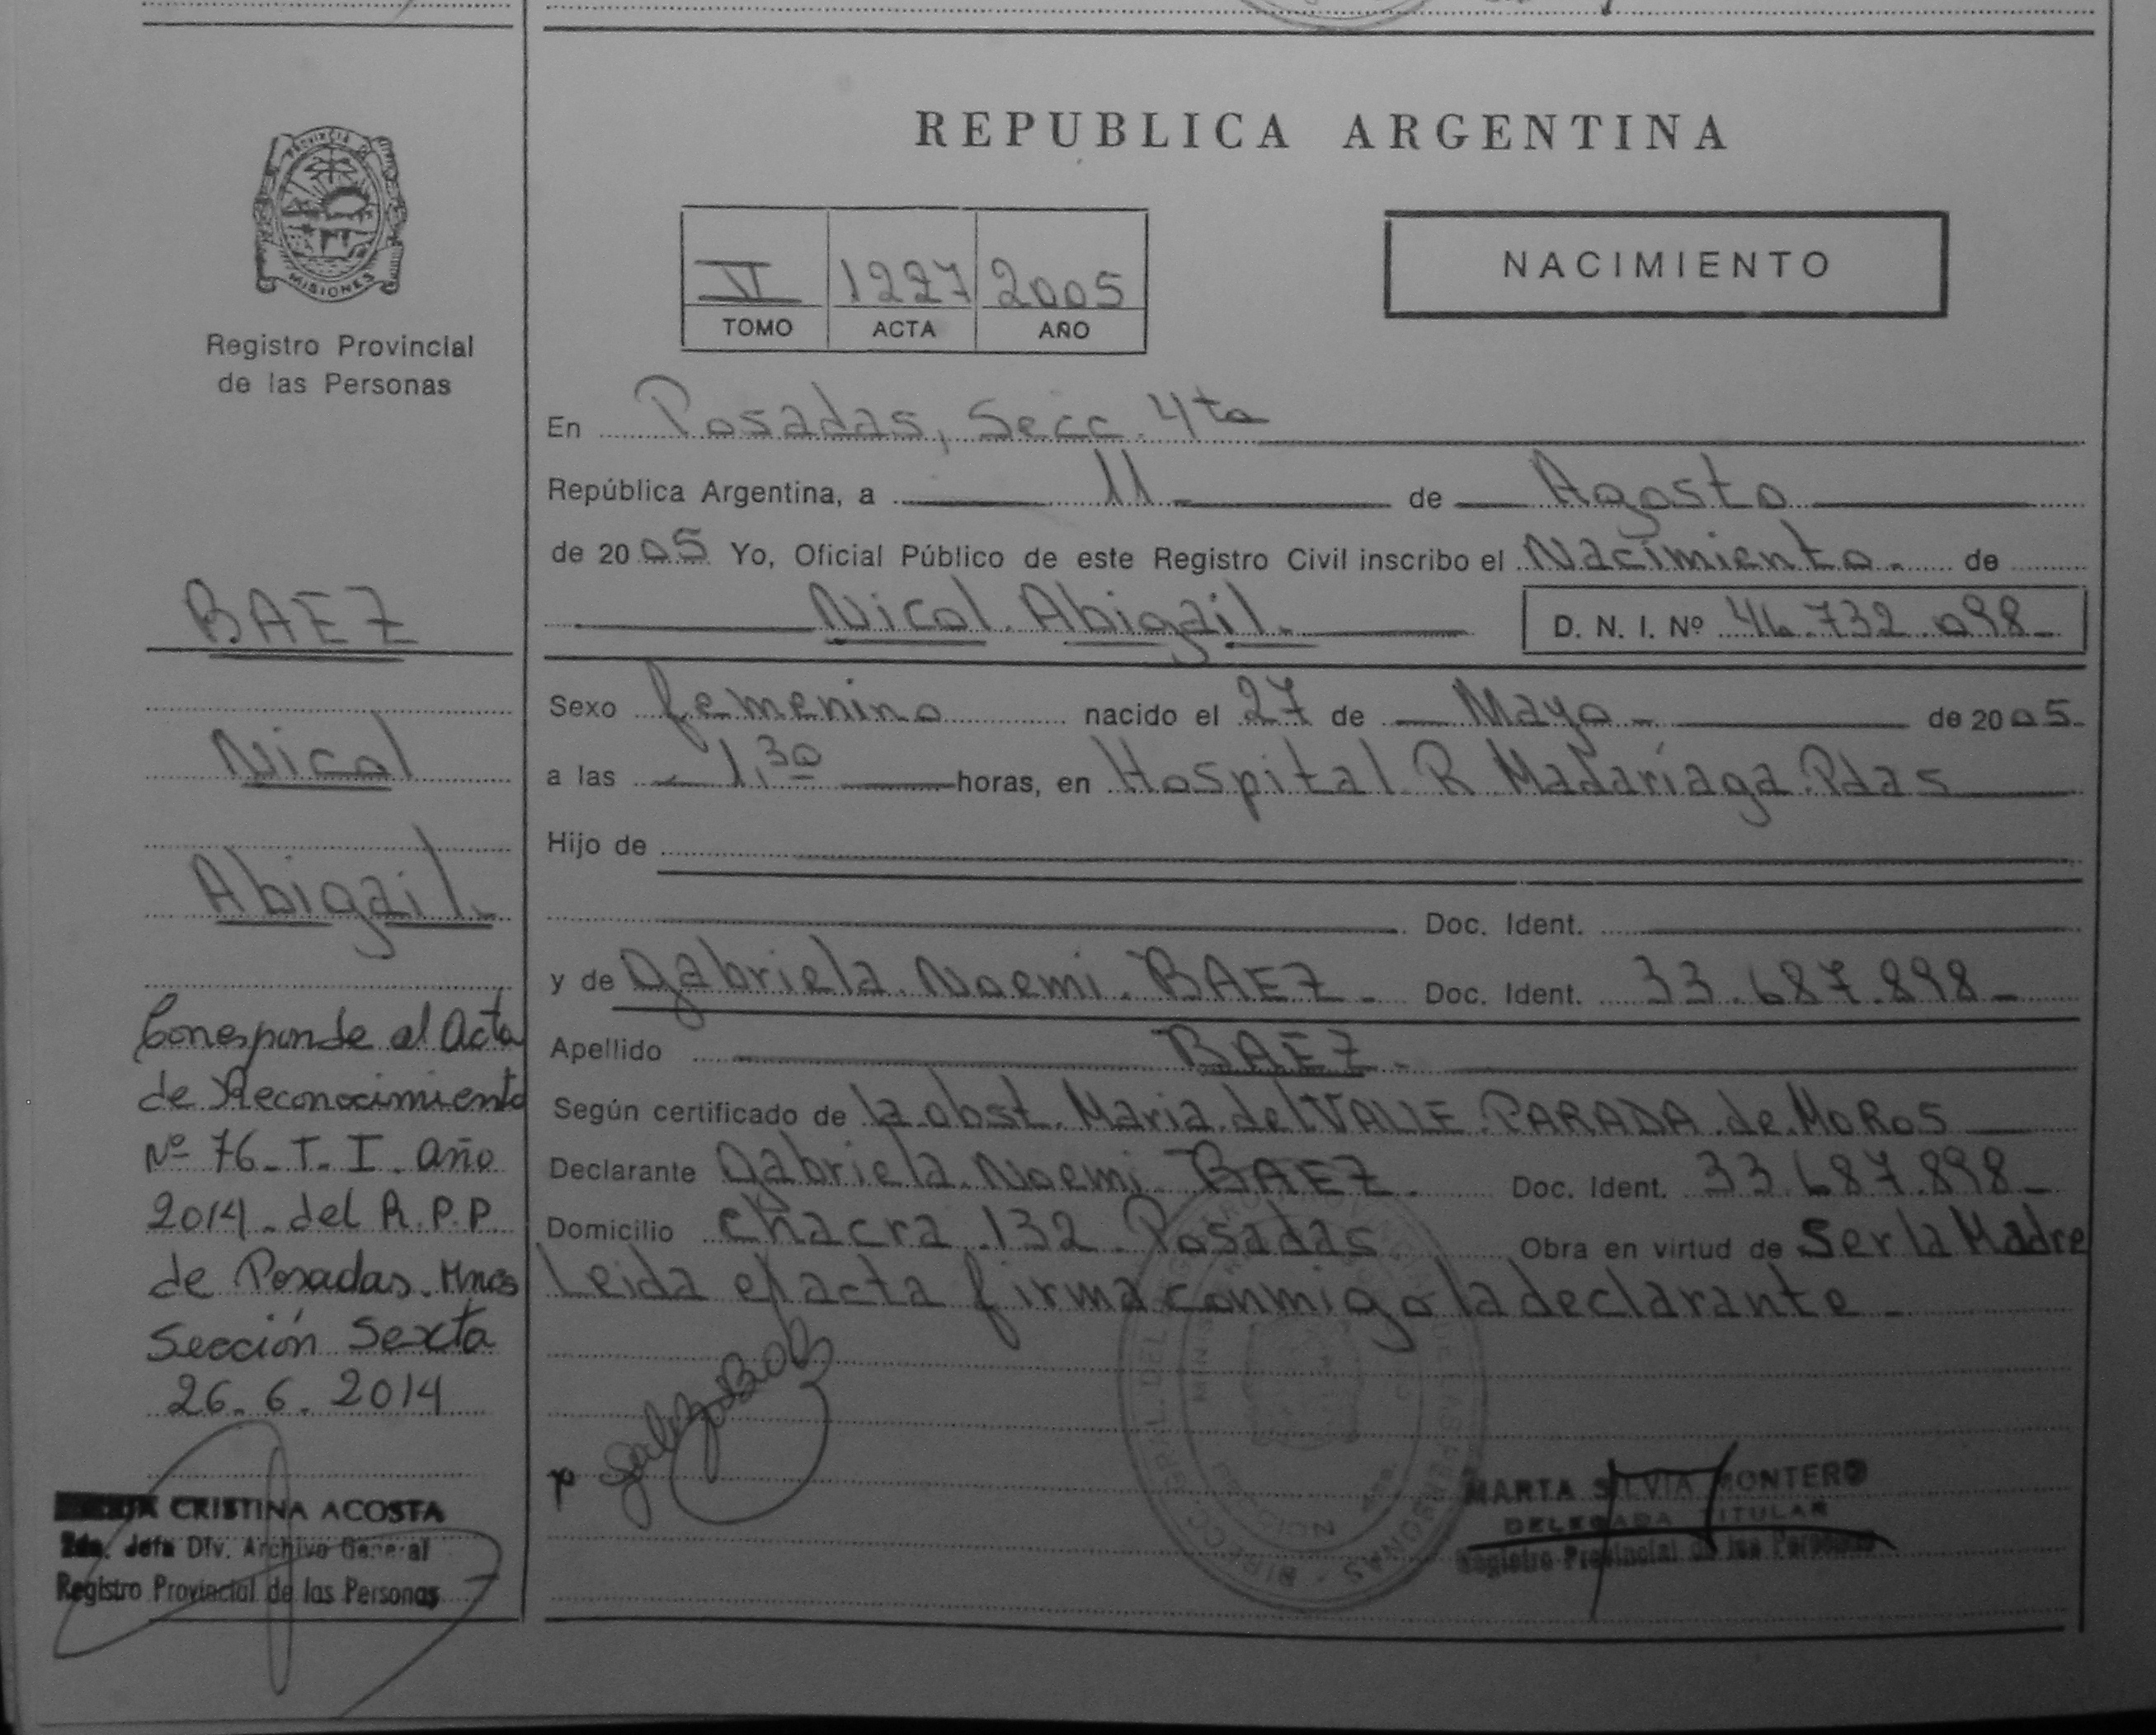 PROVINCIA D
MISIONES
Registro Provincial
de las Personas
BAEZ
Nicol
Abigail.
Corresponde al Acta
de Reconocimiento
Nº 76_ T. I. año
2014_ del R.P.P
de Posadas. Mnes
Sección Sexta
26. 6. 2014
CRISTINA ACOSTA
2da. Jefa Div. Archivo General
Registro Provincial de las Personas
REPUBLICA ARGENTINA
NACIMIENTO
1227 2005
TOMO ACTA AÑO
En Posadas, Secc. 4ta
República Argentina, a 11_ de Agosto
de 2005 Yo, Oficial Público de este Registro Civil inscribo el Nacimiento. de
Nicol. Abigail. D. N. I. Nº 46.732.098_
Sexo femenino nacido el 27 de Mayo_ de 2005.
a las 1,30 horas, en Hospital R Madariaga. Pdas
Hijo de
Doc. Ident.
y de Gabriela. Noemi. BAEZ_ Doc. Ident. 33.687.898_
Apellido BAEZ_
Según certificado de la obst. Maria del VALLE PARADA de MOROS
Declarante Gabriela. Noemi. BAEZ. Doc. Ident. 33.687.898_
Domicilio chacra 132. Posadas Obra en virtud de Ser la Madre
Leida el acta firma conmigo la declarante_
MARTA SILVIA MONTERO
DELEGADA TITULAR
Registro Provincial de las Personas